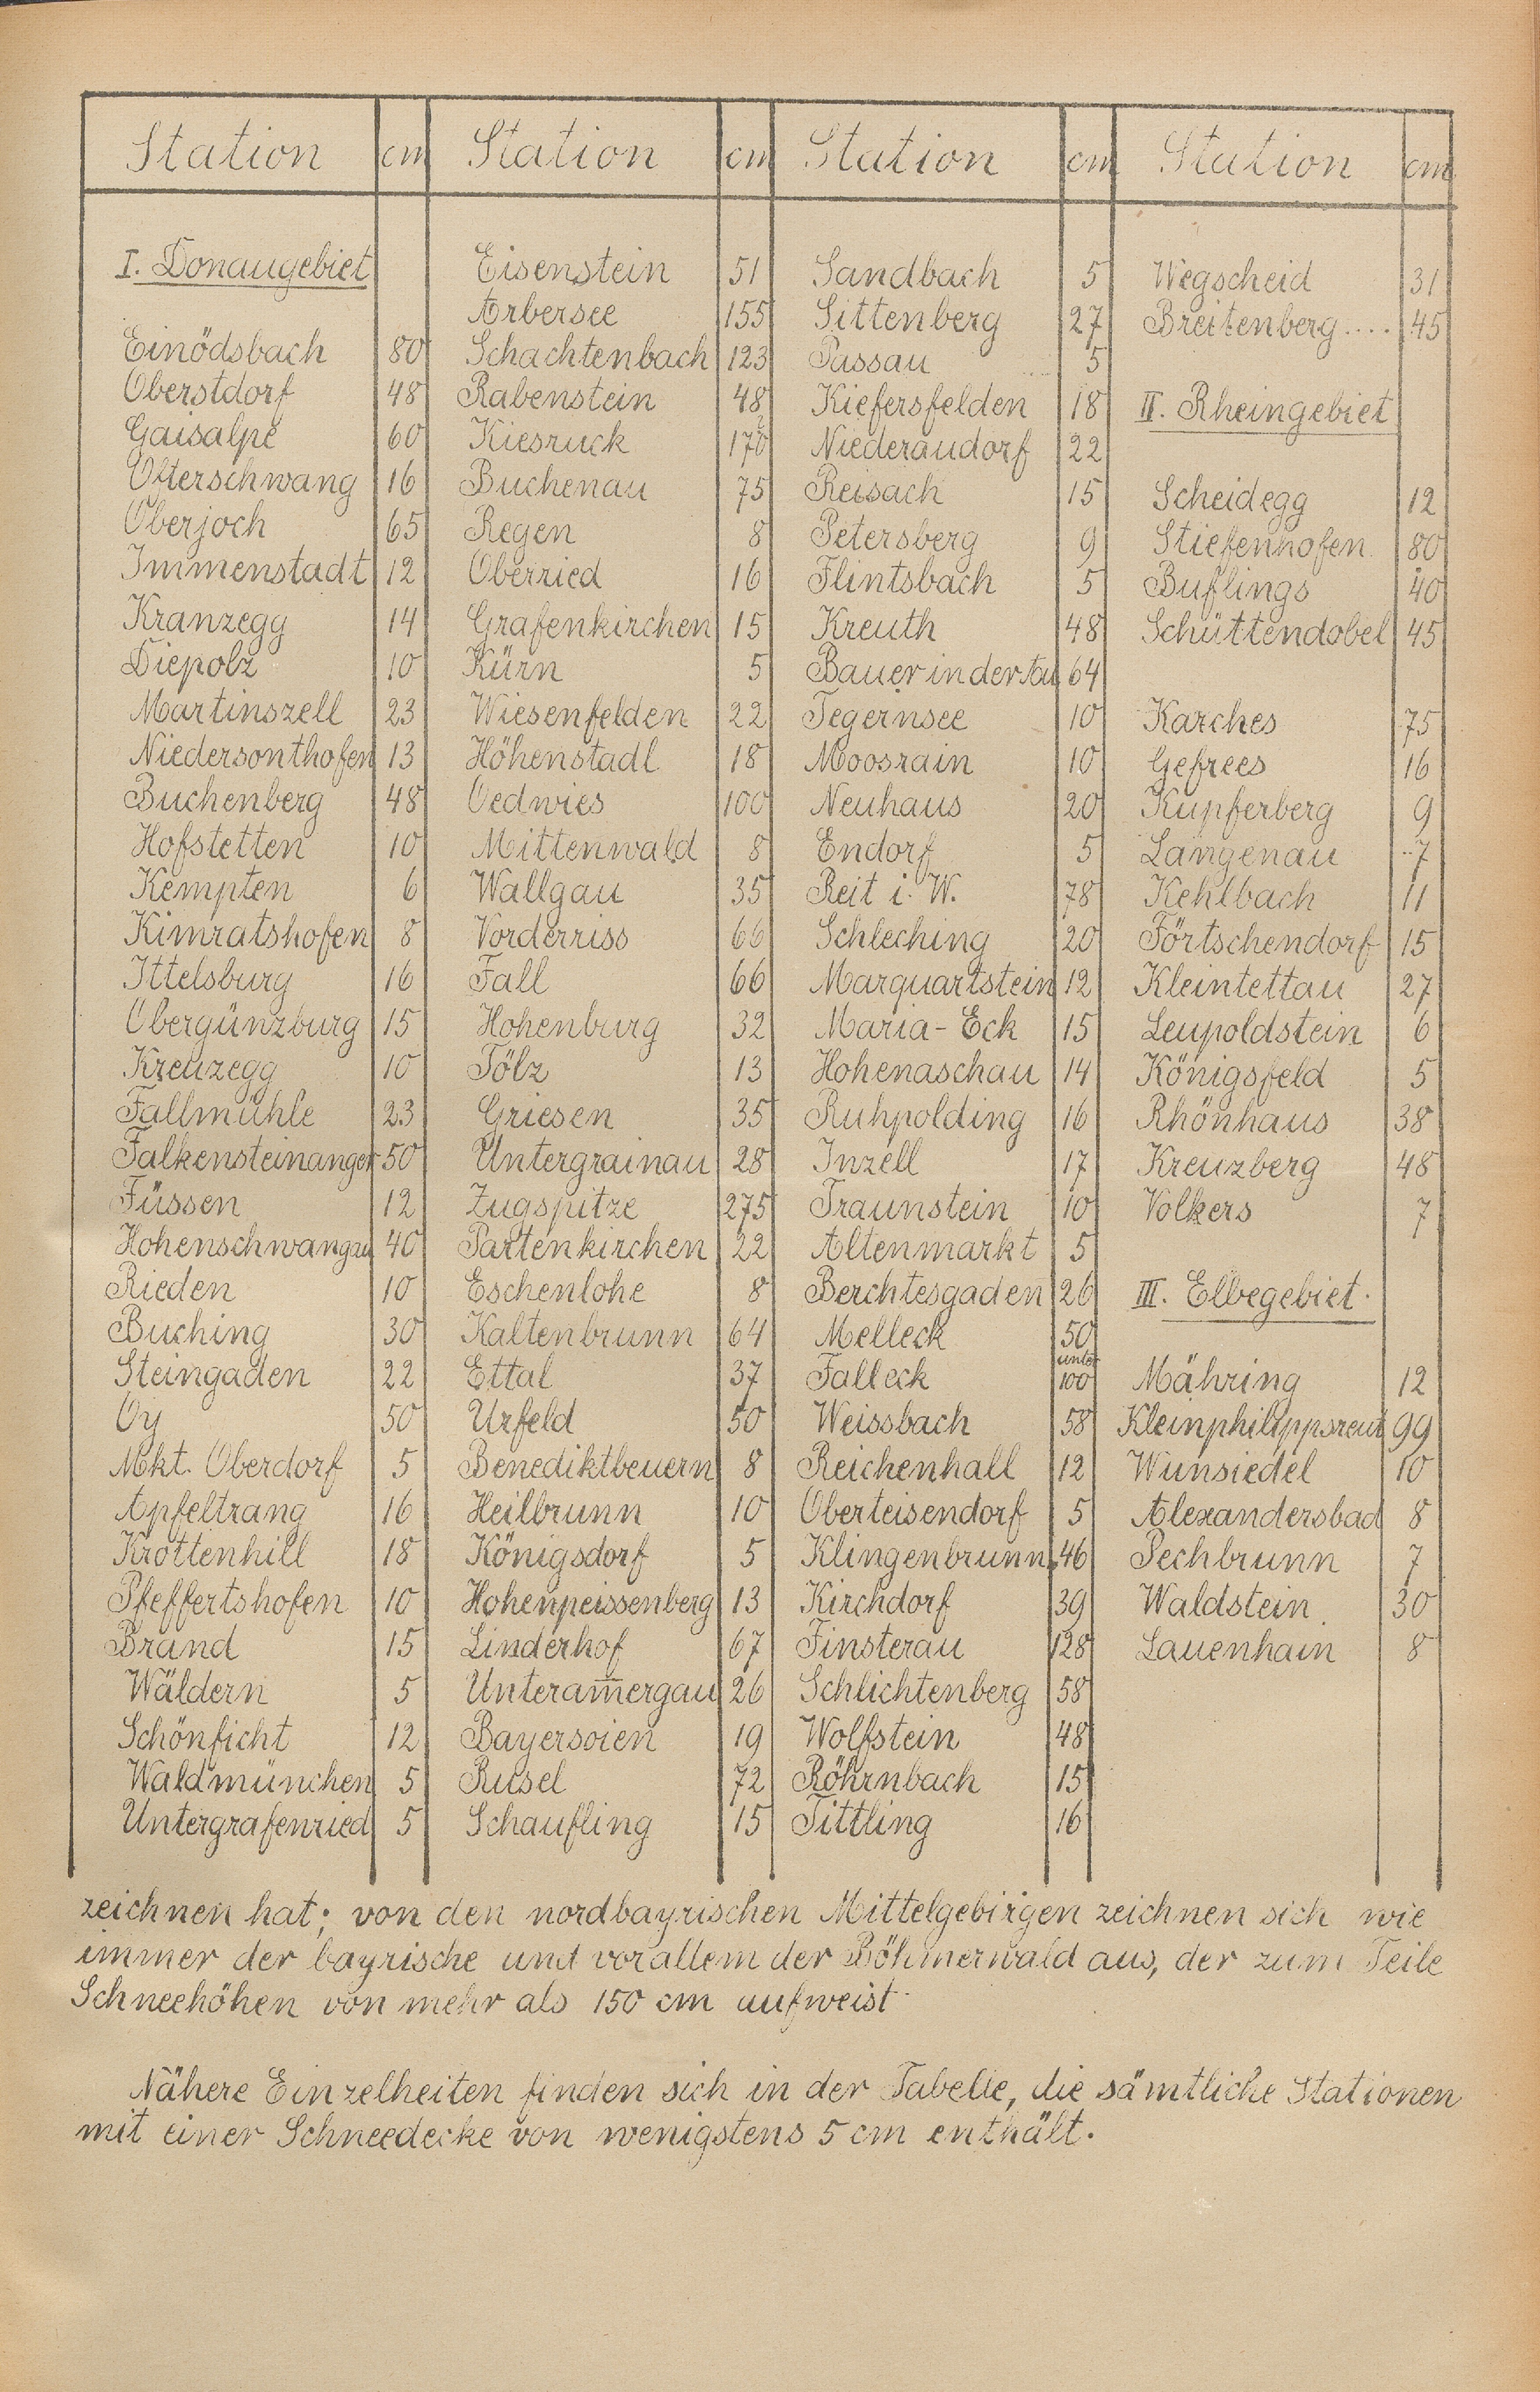 Station cm Station cm Station cm Station cm
I. Donaugebiet
Einödsbach 80
Oberstdorf 48
Gaisalpe 60
Ofterschwang 16
Oberjoch 65
Immenstadt 12
Kranzegg 14
Diepolz 10
Martinszell 23
Niedersonthofen 13
Buchenberg 48
Hofstetten 10
Kempten 6
Kimratshofen 8
Ittelsburg 16
Obergünzburg 15
Kreuzegg 10
Fallmühle 23
Falkensteinanger 50
Füssen 12
Hohenschwangau 40
Rieden 10
Buching 30
Steingaden 22
Oy 50
Mkt. Oberdorf 5
Apfeltrang 16
Krottenhill 18
Pfeffertshofen 10
Brand 15
Wäldern 5
Schönficht 12
Waldmünchen 5
Untergrafenried 5
Eisenstein 51
Arbersee 155
Schachtenbach 123
Rabenstein 48
Kiesruck 170?
Buchenau 75
Regen 8
Oberried 16
Grafenkirchen 15
Kürn 5
Wiesenfelden 22
Höhenstadl 18
Oedwies 100
Mittenwald 8
Wallgau 35
Vorderriss 66
Fall 66
Hohenburg 32
Tölz 13
Griesen 35
Untergrainau 28
Zugspitze 275
Partenkirchen 22
Eschenlohe 8
Kaltenbrunn 64
Ettal 37
Urfeld 50
Benediktbeuern 8
Heilbrunn 10
Königsdorf 5
Hohenpeissenberg 13
Linderhof 67
Unteram̅ergau 26
Bayersoien 19
Rusel 72
Schaufling 15
Sandbach 5
Sittenberg 27
Passau 5
Kiefersfelden 18
Niederaudorf 22
Reisach 15
Petersberg 9
Flintsbach 5
Kreuth 48
Bauer in der Au 64
Tegernsee 10
Moosrain 10
Neuhaus 20
Endorf 5
Reit i. W. 78
Schleching 20
Marquartstein 12
Maria-Eck 15
Hohenaschau 14
Ruhpolding 16
Inzell 17
Traunstein 10
Altenmarkt 5
Berchtesgaden 26
Melleck 50
Falleck unter 100
Weissbach 58
Reichenhall 12
Oberteisendorf 5
Klingenbrunn 46
Kirchdorf 39
Finsterau 128
Schlichtenberg 58
Wolfstein 48
Röhrnbach 15
Tittling 16
Wegscheid 31
Breitenberg .... 45
II. Rheingebiet
Scheidegg 12
Stiefenhofen 80
Buflings 40
Schüttendobel 45
Karches 75
Gefrees 16
Kupferberg 9
Langenau 7
Kehlbach 11
Förtschendorf 15
Kleintettau 27
Leupoldstein 6
Königsfeld 5
Rhönhaus 38
Kreuzberg 48
Volkers 7
III. Elbegebiet.
Mähring 12
Kleinphilippsreut 99
Wunsiedel 10
Alexandersbad 8
Pechbrunn 7
Waldstein 30
Lauenhain 8
zeichnen hat; von den nordbayrischen Mittelgebirgen zeichnen sich wie
immer der bayrische und vor allem der Böhmerwald aus, der zum Teile
Schneehöhen von mehr als 150 cm aufweist.
Nähere Einzelheiten finden sich in der Tabelle, die sämtliche Stationen
mit einer Schneedecke von wenigstens 5 cm enthält.